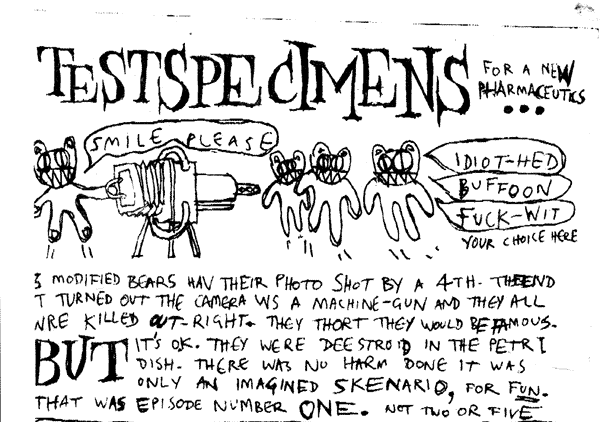 TESTSPECIMENS
FOR A NEW
PHARMACEUTICS
...
SMILE PLEASE
IDIOT-HED
BUFFOON
FUCK-WIT
YOUR CHOICE HERE
3 MODIFIED BEARS HAV THEIR PHOTO SHOT BY A 4TH. THEEND
T TURNED OUT THE CAMERA WS A MACHINE-GUN AND THEY ALL
WRE KILLED OUT-RIGHT. THEY THORT THEY WOULD BE FAMOUS.
BUT IT'S OK. THEY WERE DEESTROID IN THE PETRI
DISH. THERE WAS NO HARM DONE IT WAS
ONLY AN IMAGINED SKENARIO, FOR FUN.
THAT WAS EPISODE NUMBER ONE. NOT TWO OR FIVE